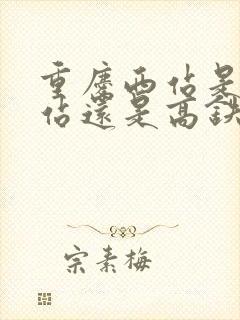 重庆西站是
站还是高铁
宗素梅